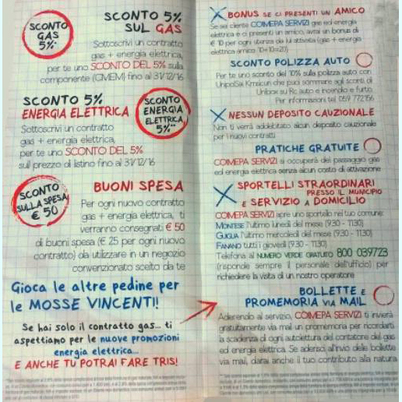 SCONTO GAS 5%*
SCONTO 5%
SUL GAS
Sottoscrivi un contratto
gas + energia elettrica,
per te uno SCONTO DEL 5% sulla
componente (CMEM) fino al 31/12/16
SCONTO 5%
ENERGIA ELETTRICA
SCONTO ENERGIA ELETTRICA 5%**
Sottoscrivi un contratto
gas + energia elettrica,
per te uno SCONTO DEL 5%
sul prezzo di listino fino al 31/12/16
SCONTO SULLA SPESA € 50
BUONI SPESA
Per ogni nuovo contratto
gas + energia elettrica, ti
verranno consegnati € 50
di buoni spesa (€ 25 per ogni nuovo
contratto) da utilizzare in un negozio
convenzionato scelto da te
Gioca le altre pedine per
le MOSSE VINCENTI!
Se hai solo il contratto gas... ti
aspettiamo per le nuove promozioni
energia elettrica...
E ANCHE TU POTRAI FARE TRIS!
BONUS SE CI PRESENTI UN AMICO
Se sei cliente COIMEPA SERVIZI gas ed energia
elettrica e ci presenti un amico, avrai un bonus di
€ 10 per ogni utenza da lui attivata (gas + energia
elettrica anno: 10+10=20)
SCONTO POLIZZA AUTO
Per te uno sconto del 10% sulla polizza auto con
UnipolSai
che puoi sommare agli sconti di
Unibox su Rc auto e incendio e furto.
Per informazioni tel 059 772156
NESSUN DEPOSITO CAUZIONALE
Non ti verrà addebitato alcun deposito cauzionale
per i nuovi contratti
PRATICHE GRATUITE
COIMEPA SERVIZI si occuperà dei passaggi gas
ed energia elettrica senza alcun costo di attivazione
SPORTELLI STRAORDINARI
PRESSO IL MUNICIPIO
E SERVIZIO A DOMICILIO
COIMEPA SERVIZI apre uno sportello nel tuo comune:
MONTESE l'ultimo lunedì del mese (9:30 - 11:30)
GUIGLIA l'ultimo mercoledì del mese (9:30 - 11:30)
FANANO tutti i giovedì (9:30 - 11:30)
Telefona al NUMERO VERDE GRATUITO 800 039723
(risponde sempre il personale dell'ufficio) per
richiedere la visita di un nostro operatore
BOLLETTE E
PROMEMORIA VIA MAIL
Aderendo al servizio, COIMEPA SERVIZI ti invierà
gratuitamente via mail un promemoria per ricordarti
la scadenza di ogni autolettura del contatore del gas
ed energia elettrica. Se aderisci all'invio delle bollette
via mail, darai anche il tuo contributo alla natura